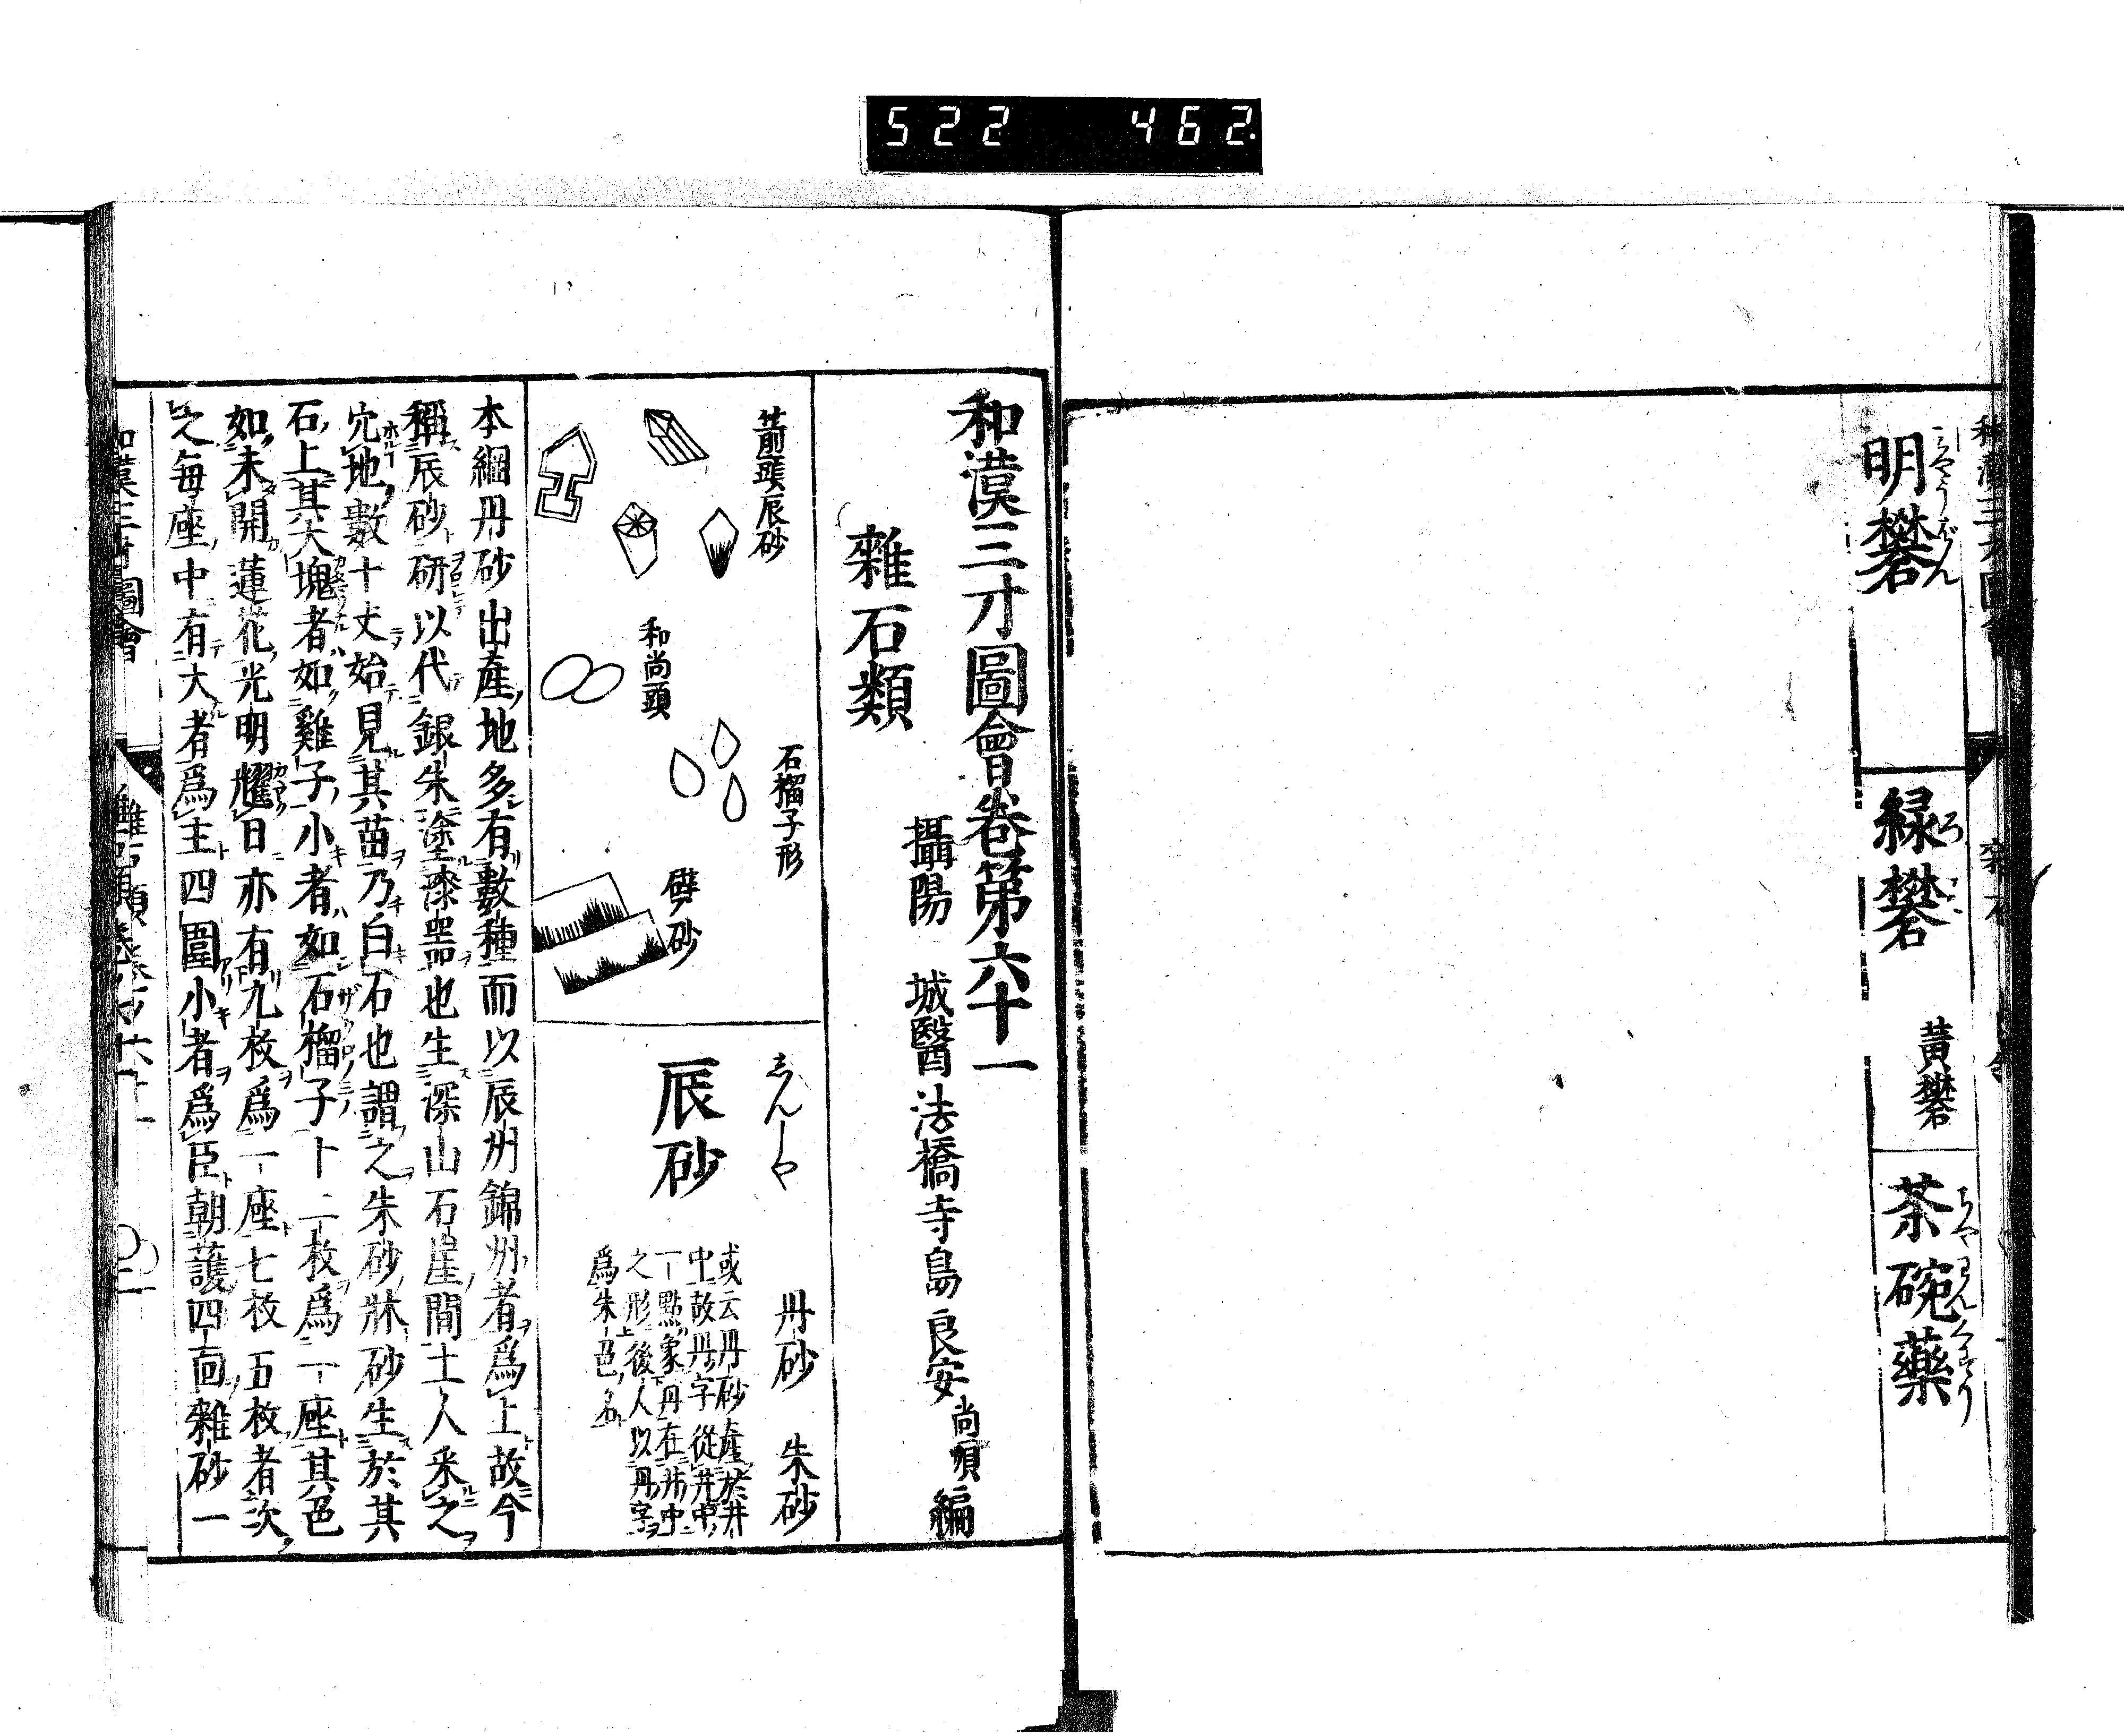 522 462.
明礬
みやうばん
綠礬
ろ
黃礬
茶碗藥
ちやわんくすり
和漢三才圖會卷第六十一
攝陽 城醫法橋寺島良安尚順編
雜石類
箭頭辰砂
石榴子形
和尚頭
劈砂
しんしや
辰砂
丹砂 朱砂
或云丹砂產於井
中故丹字從井中
一點象丹在井中
之形後人以丹字
爲朱色名
本綱丹砂出產地多有數種而以辰州錦州者爲上故今
稱辰砂研以代銀朱塗漆器也生深山石崖間土人采之
穴地數十丈始見其苗乃白石也謂之朱砂牀砂生於其
石上其大塊者如雞子小者如石榴子十二枚爲一座其色
如未開蓮花光明耀日亦有九枚爲一座七枚五枚者次
之每座中有大者爲主四圍小者爲臣朝護四面雜砂一